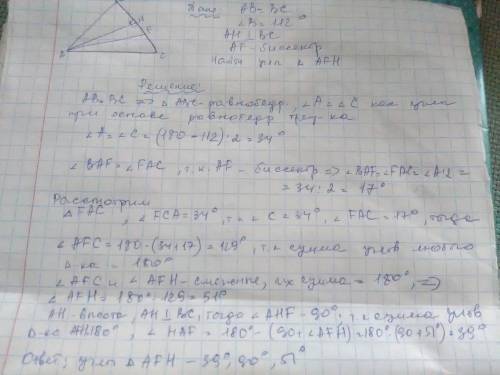 Дано AB=BC
∠B=112°
AH⊥BC
AF-биссектр
Найти угл ∆ AFH
Решение:
AB=BC => ∆ABC-равнобедр, ∠A=∠C как углы
при основе равнобедр треу-ка
∠A=∠C=(180-112):2=34°
∠BAF=∠FAC, т.к. AF-биссектр => ∠BAF=∠FAC=∠A:2=
=34:2=17°
Рассмотрим
∆FAC, ∠FCA=34°, т.к ∠C=34°, ∠FAC=17°, тогда
∠AFC=180-(34+17)=129°, т.к сумма углов любого
∆-ка=180°
∠AFC и ∠AFH-смежные, их сумма=180°, =>
∠AFH=180°-129=51°
AH-высота, AH⊥BC, тогда ∠AHF-90°, т.к сумма углов
∆-ка 180°, ∠HAF=180°-(90+∠AFH)=180°-(90+51°)=39°
Ответ: углы ∆AFH-39°, 90°, 51°